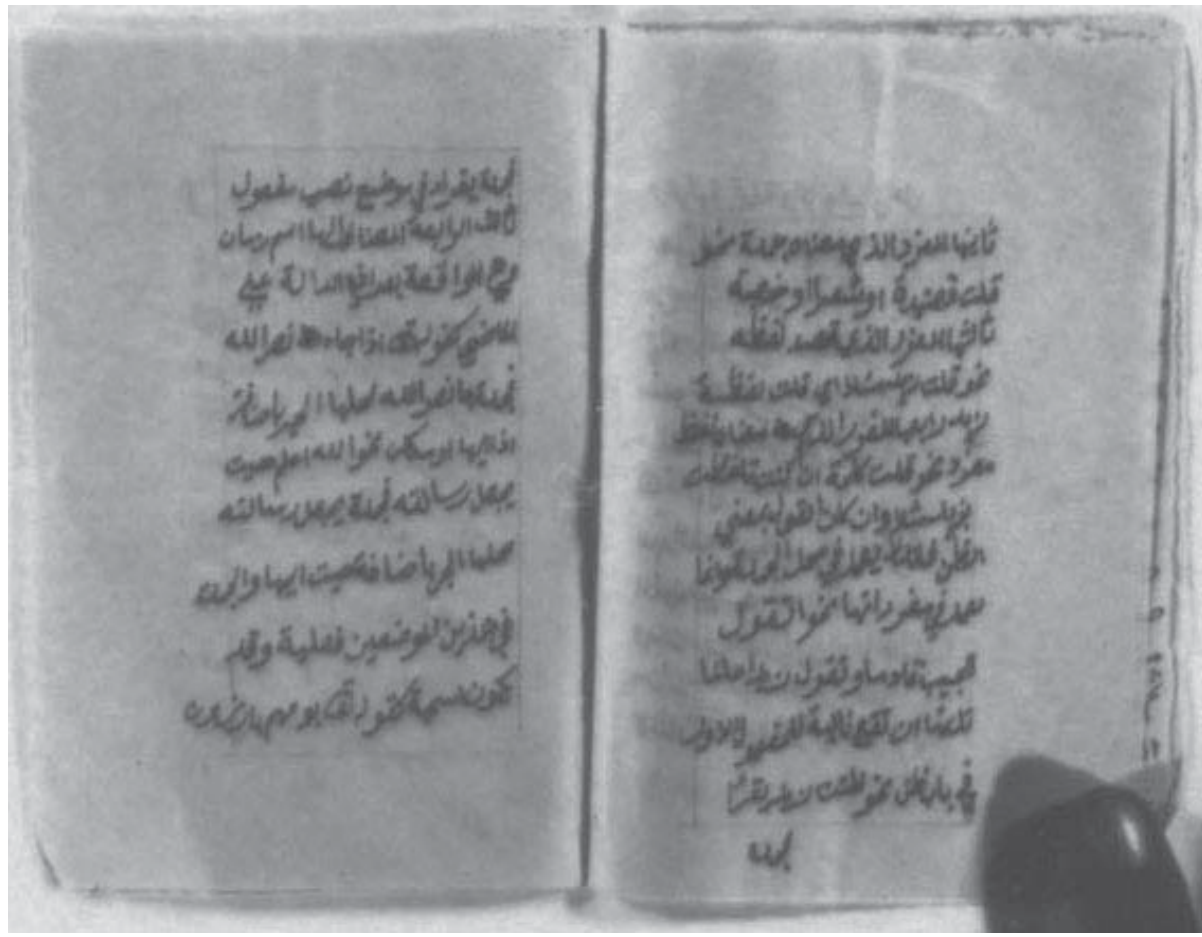 ثانيها المفرد الذي معناه جملة نحو
قلت قصيدة او شعرا او خطبة
ثالثها المفرد الذي قصد لفظه
نحو قلت زيد مثلا اي قلت لفظة
زيد رابعها المفرد الذي معناه لفظ
مفرد نحو قلت كلمة ان كنت تلفظت
بزيد مثلا وان كان القول بمعنى
الظن فانه يعمل في محل الجملة كونها
نحو اتقول
قادما او تقول زيدا
ثالثها ان تقع تالية للمفعول الاول
في باب ظن نحو ظننت زيدا يقرأ
فجملة
فجملة يقرأ في موضع نصب مفعول
ثالثه الرابعة المضاف اليها اسم زمان
وهي الواقعة بعد اذ الدالة على
الماضي كقوله تعالى اذا جاء نصر الله
فجملة جاء نصر الله محلها الجر باضافة
اذ اليها او مكان نحو الله اعلم حيث
يجعل رسالته فجملة يجعل رسالته
محلها الجر باضافة حيث اليها والجملة
في هذين الموضعين فعلية وقد
تكون اسمية كقوله تعالى يوم هم بارزون